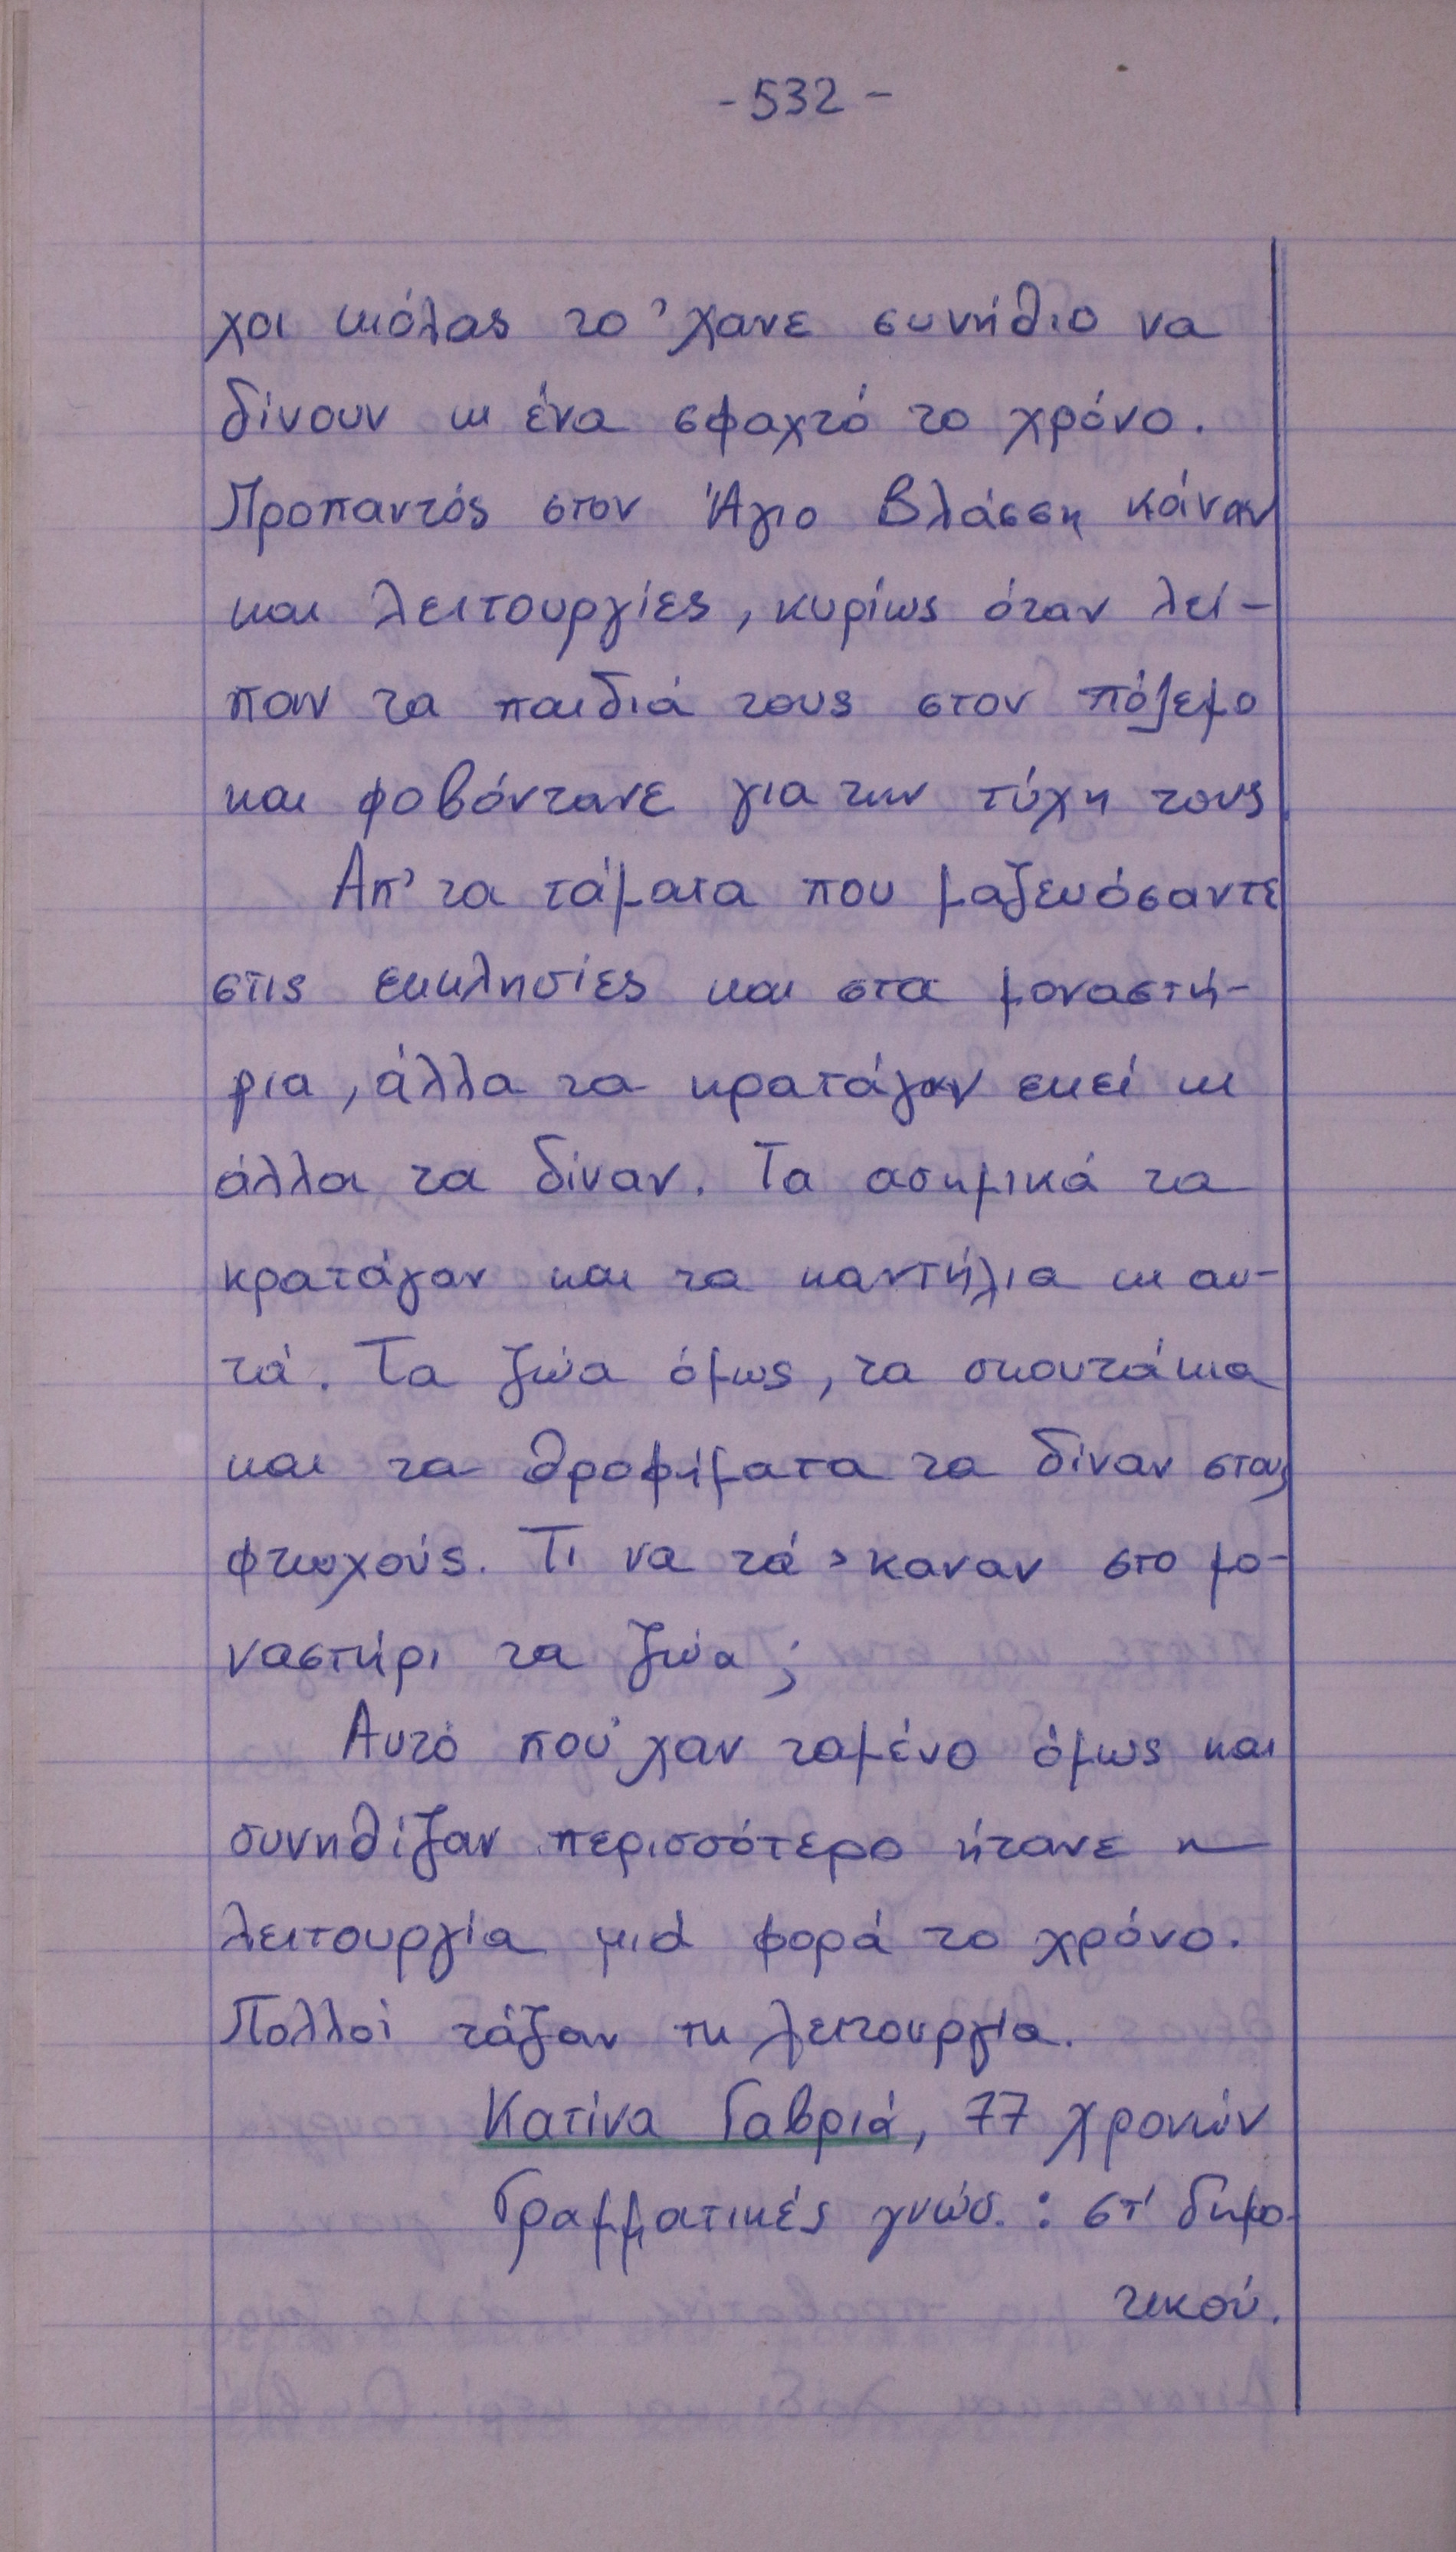 - 532 -
χοι κιόλας το 'χανε συνήθιο να
δίνουν κι ένα σφαχτό το χρόνο.
Προπαντός στον Άγιο Βλάσση κάναν
και λειτουργίες, κυρίως όταν λεί-
παν τα παιδιά τους στον πόλεμο
και φοβόντανε για την τύχη τους
Απ' τα τάματα που μαζευόσαντε
στις εκκλησίες και στα μοναστή-
ρια, άλλα τα κρατάγαν εκεί κι
άλλα τα δίναν. Τα ασημικά τα
κρατάγαν και τα καντήλια κι αυ-
τά. Τα ζώα όμως, τα σκουτάκια
και τα θροφήματα τα δίναν στους
φτωχούς. Τι να τά 'καναν στο μο-
ναστήρι τα ζώα;
Αυτό πού 'χαν ταμένο όμως και
συνηθίζαν περισσότερο ήτανε η
λειτουργία μιά φορά το χρόνο.
Πολλοί τάζαν τη λειτουργία.
Κατίνα Γαβριά, 77 χρονών
Γραμματικές γνώσ. : στ' δημο-
τικού.